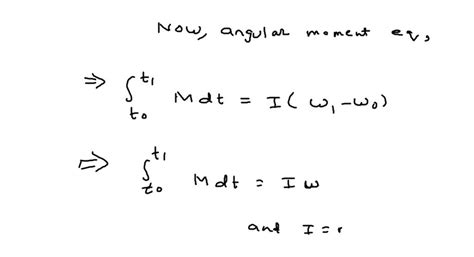 Now, angular moment eq,
⇒ ∫_{t0}^{t1} Mdt = I( ω1-ω0)
⇒ ∫_{t0}^{t1} Mdt = I ω
and I =